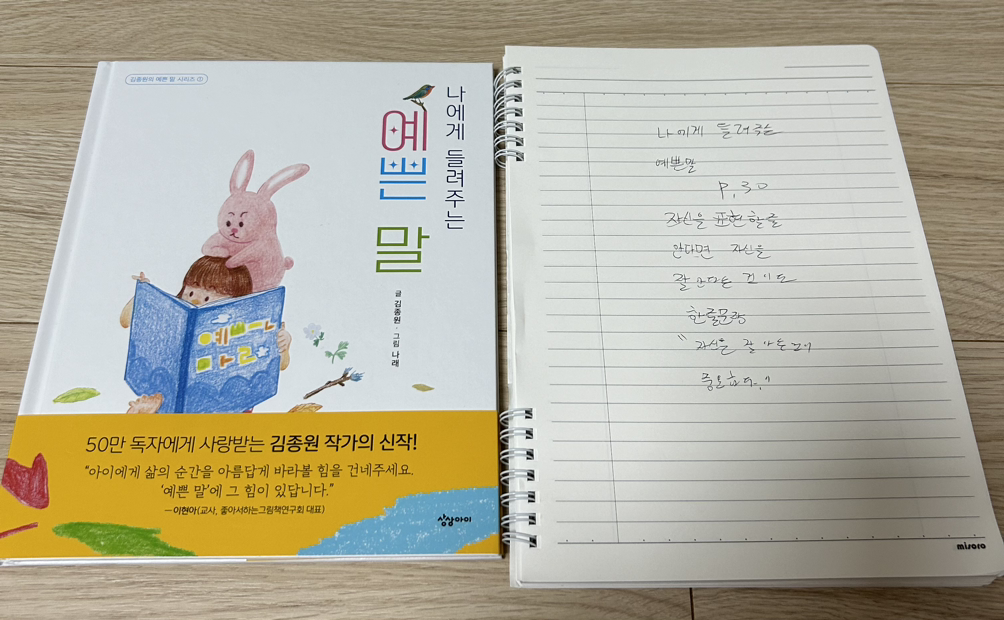 김종원의 예쁜 말 시리즈 ①
나에게 들려주는
예쁜 말
글 김종원 · 그림 나래
예쁜
말
50만 독자에게 사랑받는 김종원 작가의 신작!
"아이에게 삶의 순간을 아름답게 바라볼 힘을 건네주세요.
'예쁜 말'에 그 힘이 있답니다."
—이현아(교사, 좋아서하는그림책연구회 대표)
상상아이
나에게 들려주는
예쁜말
P, 30
자신을 표현할줄
안다면 자신을
잘 안다는
한줄문장
"자신을 잘 아는
중요하다."
misoro